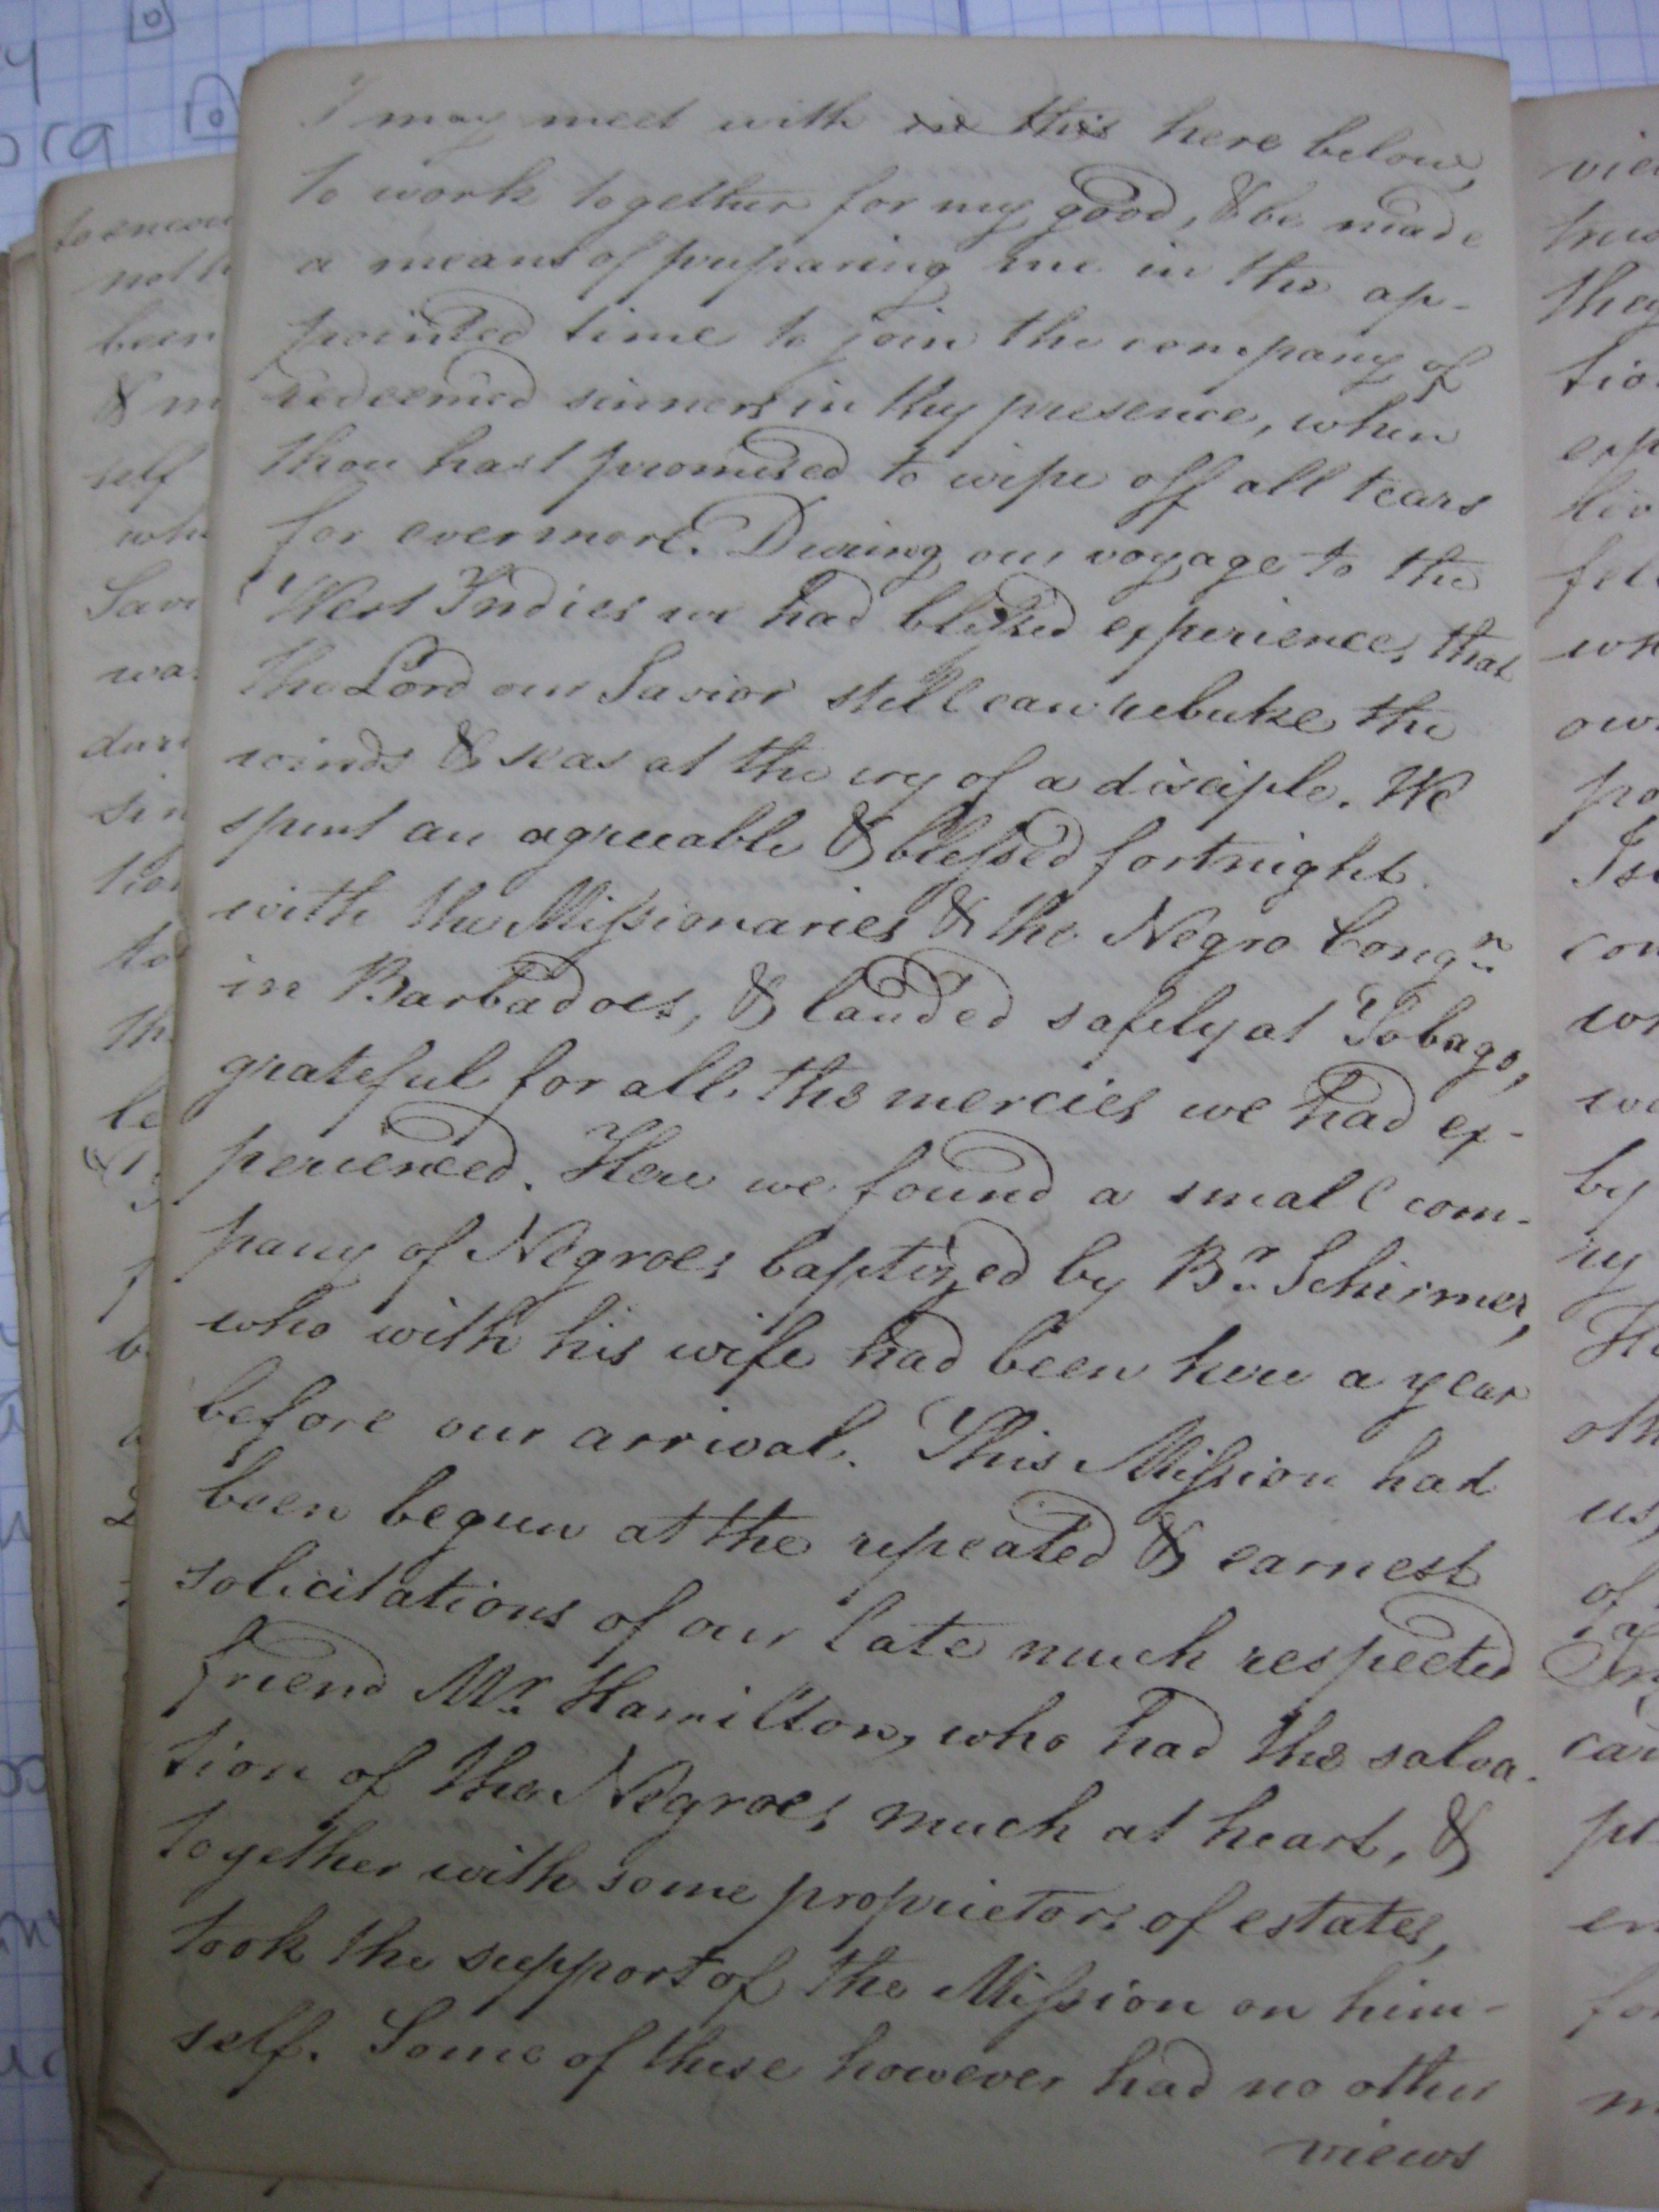 I may meet with in this here below,
to work together for my good, & be made
a means of preparing me in the ap-
pointed time to join the company of
redeemed sinners in thy presence, when
thou hast promised to wipe off all tears
for evermore. During our voyage to the
West Indies we had blessed experience, that
the Lord our Savior still can rebuke the
winds & seas at the cry of a disciple. We
spent an agreeable & blessed fortnight
with the Missionaries & the Negro Congn.
in Barbadoes, & landed safely at Tobago,
grateful for all the mercies we had ex-
perienced. Here we found a small com-
pany of Negroes baptized by Br. Schirmer,
who with his wife had been here a year
before our arrival. This Mission had
been begun at the repeated & earnest
solicitations of our late much respected
friend Mr. Hamilton, who had the salva-
tion of the Negroes much at heart, &
together with some proprietors of estates,
took the support of the Mission on him-
self. Some of these however had no other
views